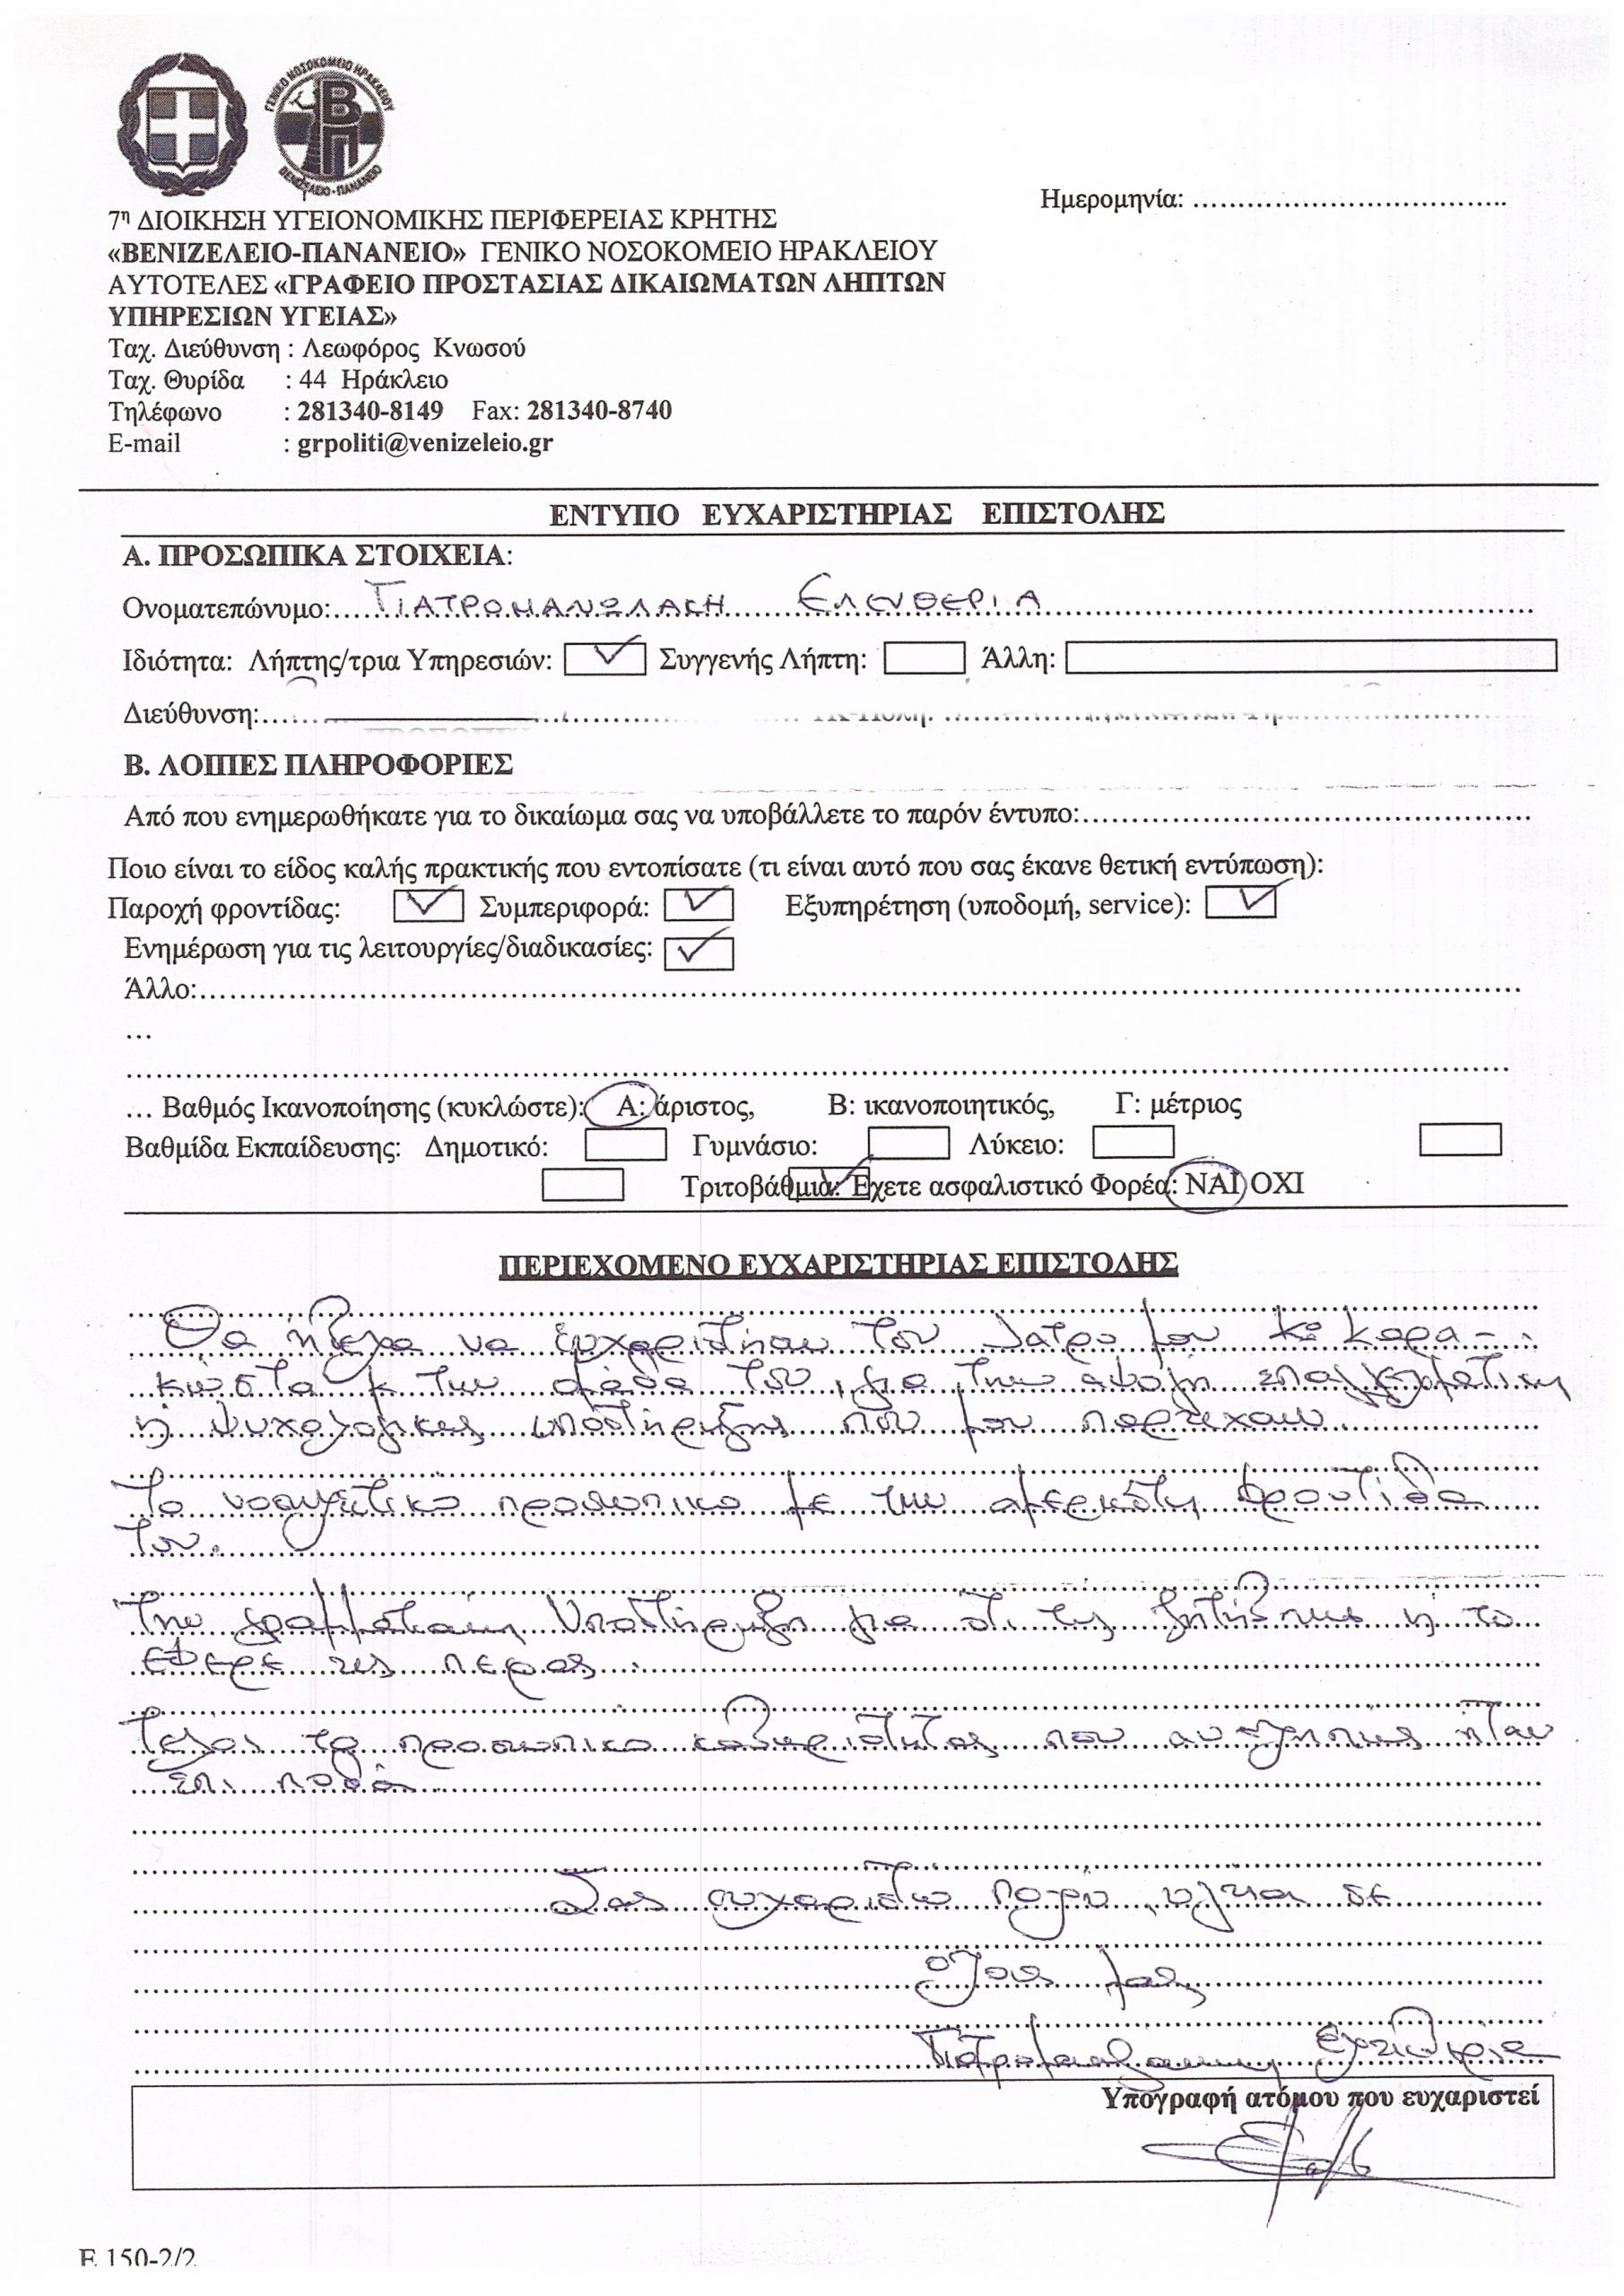 ΓΕΝΙΚΟ ΝΟΣΟΚΟΜΕΙΟ ΗΡΑΚΛΕΙΟΥ
ΒΠ
ΒΕΝΙΖΕΛΕΙΟ-ΠΑΝΑΝΕΙΟ
Ημερομηνία: ..................................
7η ΔΙΟΙΚΗΣΗ ΥΓΕΙΟΝΟΜΙΚΗΣ ΠΕΡΙΦΕΡΕΙΑΣ ΚΡΗΤΗΣ
«ΒΕΝΙΖΕΛΕΙΟ-ΠΑΝΑΝΕΙΟ» ΓΕΝΙΚΟ ΝΟΣΟΚΟΜΕΙΟ ΗΡΑΚΛΕΙΟΥ
ΑΥΤΟΤΕΛΕΣ «ΓΡΑΦΕΙΟ ΠΡΟΣΤΑΣΙΑΣ ΔΙΚΑΙΩΜΑΤΩΝ ΛΗΠΤΩΝ
ΥΠΗΡΕΣΙΩΝ ΥΓΕΙΑΣ»
Ταχ. Διεύθυνση : Λεωφόρος Κνωσού
Ταχ. Θυρίδα : 44 Ηράκλειο
Τηλέφωνο : 281340-8149 Fax: 281340-8740
E-mail : grpoliti@venizeleio.gr
ΕΝΤΥΠΟ ΕΥΧΑΡΙΣΤΗΡΙΑΣ ΕΠΙΣΤΟΛΗΣ
Α. ΠΡΟΣΩΠΙΚΑ ΣΤΟΙΧΕΙΑ:
Ονοματεπώνυμο: ΓΙΑΤΡΟΜΑΝΩΛΑΚΗ ΕΛΕΥΘΕΡΙΑ
Ιδιότητα: Λήπτης/τρια Υπηρεσιών: ✓ Συγγενής Λήπτη: Άλλη:
Διεύθυνση:
Β. ΛΟΙΠΕΣ ΠΛΗΡΟΦΟΡΙΕΣ
Από που ενημερωθήκατε για το δικαίωμα σας να υποβάλλετε το παρόν έντυπο:
Ποιο είναι το είδος καλής πρακτικής που εντοπίσατε (τι είναι αυτό που σας έκανε θετική εντύπωση):
Παροχή φροντίδας: ✓ Συμπεριφορά: ✓ Εξυπηρέτηση (υποδομή, service): ✓
Ενημέρωση για τις λειτουργίες/διαδικασίες: ✓
Άλλο:
...
... Βαθμός Ικανοποίησης (κυκλώστε): Α: άριστος, Β: ικανοποιητικός, Γ: μέτριος
Βαθμίδα Εκπαίδευσης: Δημοτικό: Γυμνάσιο: Λύκειο:
Τριτοβάθμια: ✓ Έχετε ασφαλιστικό Φορέα: ΝΑΙ ΟΧΙ
ΠΕΡΙΕΧΟΜΕΝΟ ΕΥΧΑΡΙΣΤΗΡΙΑΣ ΕΠΙΣΤΟΛΗΣ
Θα ήθελα να ευχαριστήσω τον Ιατρό μου κο Καρα-
κώστα κ την ομάδα του, για την άψογη επαγγελματική
ή ψυχολογικής υποστήριξης που μου παρείχαν.
Το νοσηλευτικό προσωπικό με την αμέριστη φροντίδα
του.
Την γραμματειακή Υποστήριξη για ότι της ζητήθηκε ή το
έφερε εις πέρας.
Τέλος το προσωπικό καθαριότητας που ανελλιπώς ήταν
επί ποδός
Σας ευχαριστώ πολύ, υγεία σε
όλους μας
Γιατρομανωλάκη Ελευθερία
Υπογραφή ατόμου που ευχαριστεί
Ε 150-2/2